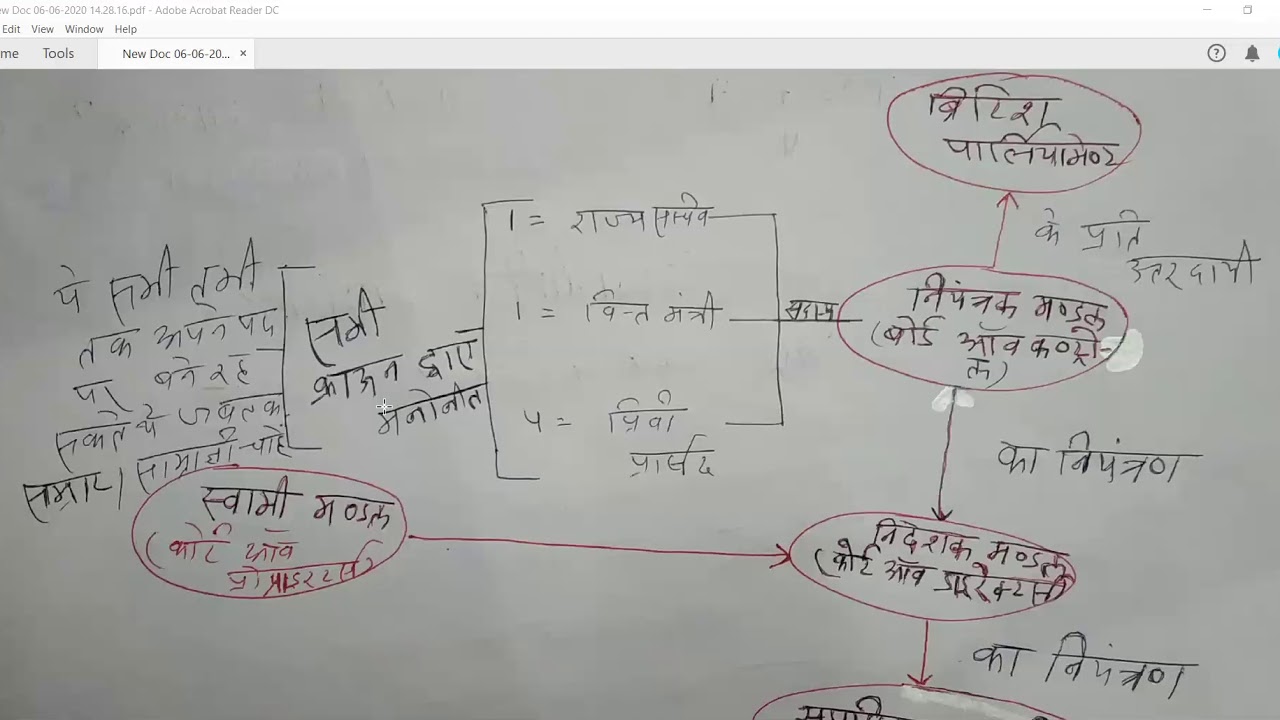 New Doc 06-06-2020 14.28.16.pdf - Adobe Acrobat Reader DC
Edit View Window Help
Tools
New Doc 06-06-20... ×
ब्रिटिश
पार्लियामेण्ट
के प्रति
उत्तरदायी
1 = राज्य सचिव
1 = वित्त मंत्री
4 = प्रिवी
सदस्य
नियंत्रक मण्डल
(बोर्ड ऑव कण्ट्रो-
ल)
ये सभी तभी
तक अपने पद
पर बने रह
सकते थे जबतक
सम्राट/सामाज्ञी चाहें
सभी
क्राऊन द्वारा
मनोनीत
का नियंत्रण
स्वामी मण्डल
(कोर्ट ऑव
प्रोप्राइटर्स)
निदेशक मण्डल
(कोर्ट ऑव डाइरेक्टर्स)
का नियंत्रण